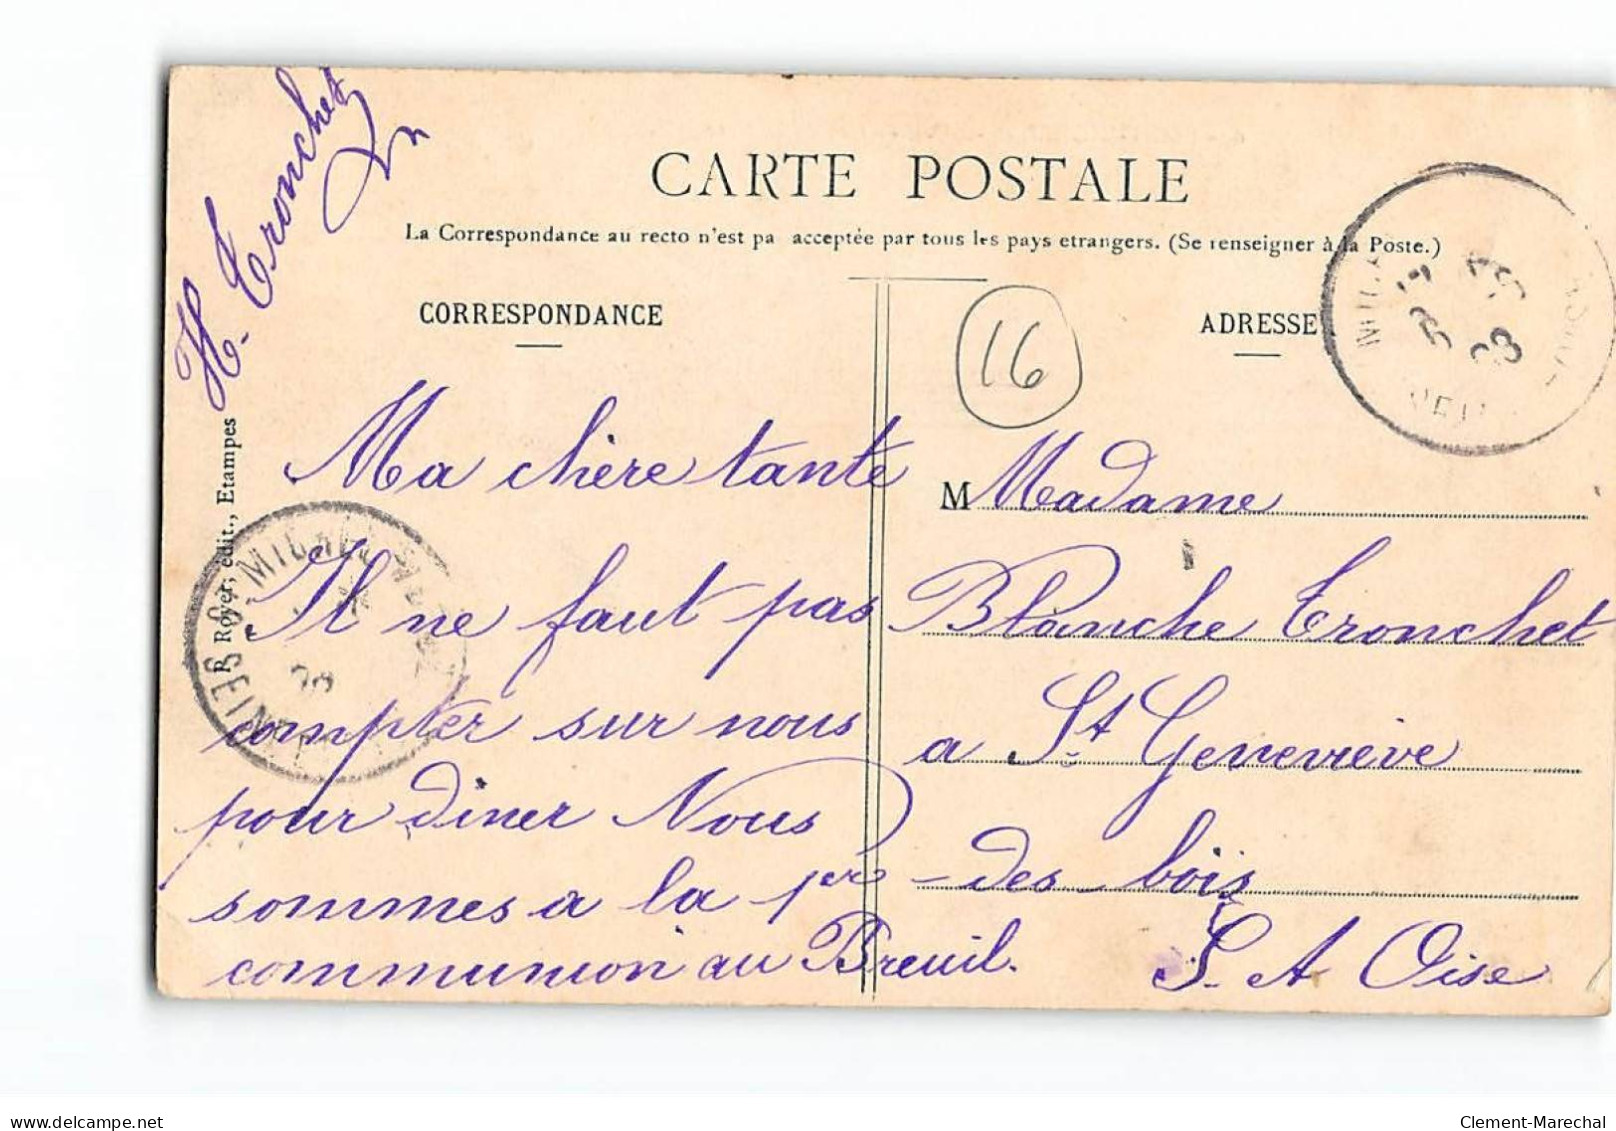 CARTE POSTALE
La Correspondance au recto n'est pa acceptée par tous les pays etrangers. (Se renseigner à la Poste.)
CORRESPONDANCE
ADRESSE
16
H. Tronchet
R Royer, édit., Etampes
Ma chère tante
Il ne faut pas
compter sur nous
pour diner Nous
sommes a la 1ère
communion au Breuil.
M Madame
Blanche Tronchet
a St Geneviève
des bois
S. A Oise
delcampe.net
Clement-Marechal